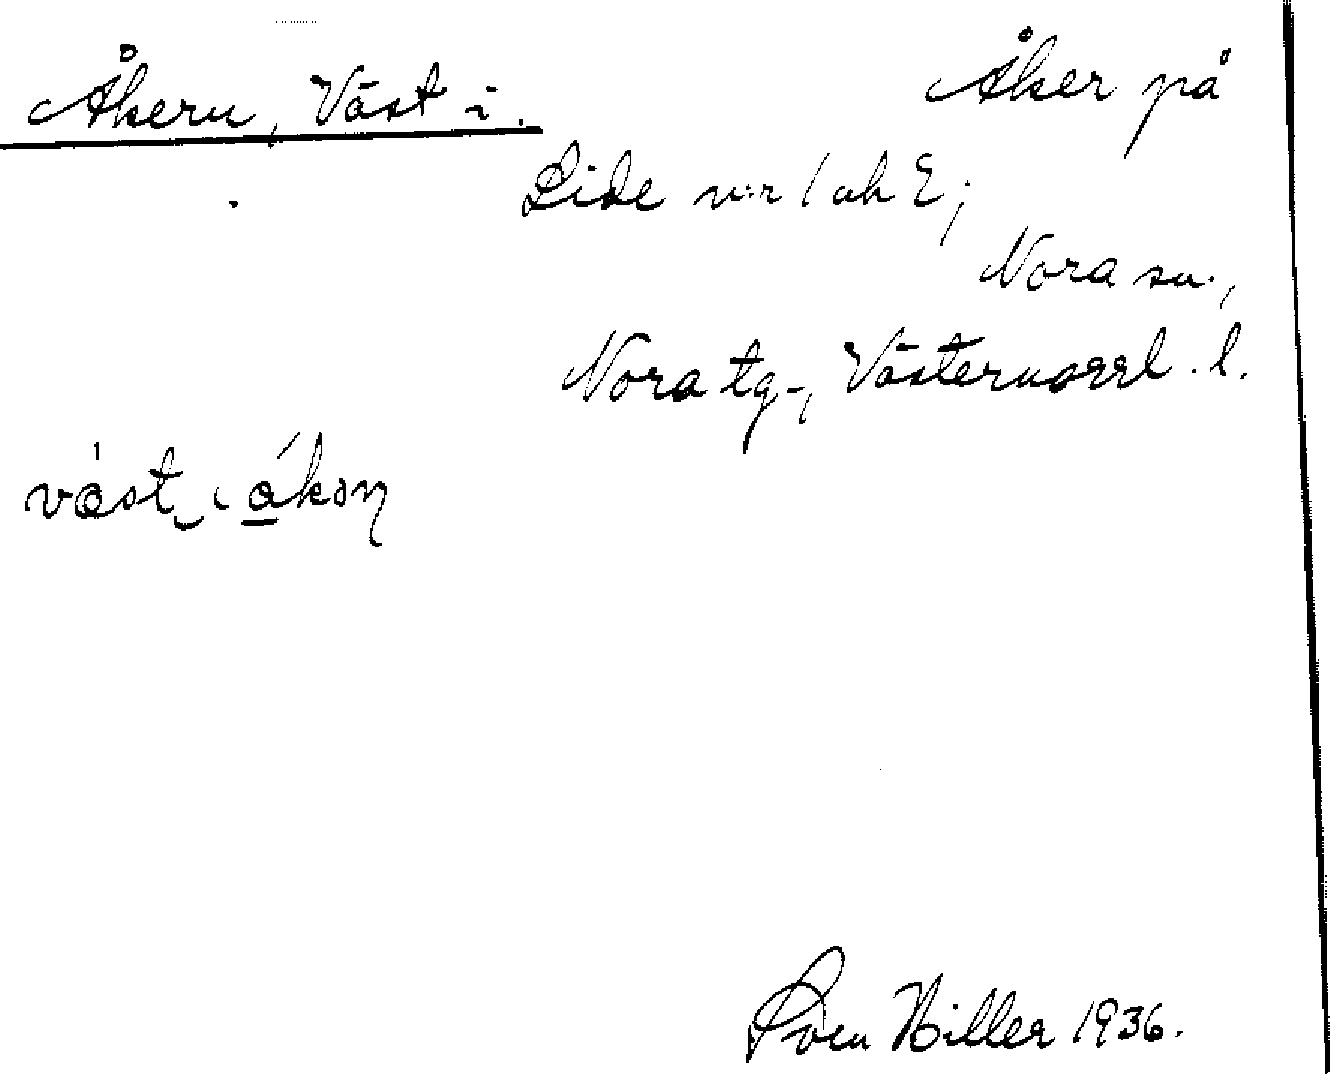 Åkern, Väst i.
Åker på
Lide n:r 1 och 2;
Nora sn.,
Nora tg., Västernorrl. l.
väst i åkən
Sven Hiller 1936.